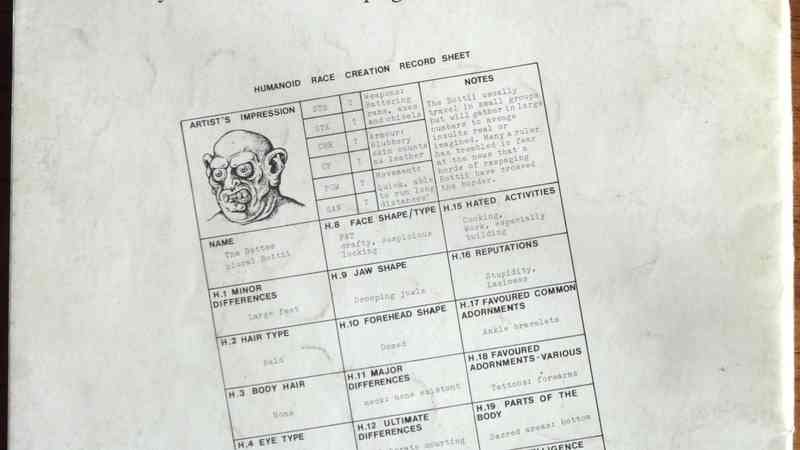 HUMANOID RACE CREATION RECORD SHEET
ARTIST'S IMPRESSION
STR ?
STA ?
CHR ?
CY ?
POW ?
SAN ?
Weapons:
Battering
rams, axes
and chisels
Armour:
Blubbery
skin counts
as leather
Movement:
Quick, able
to run long
distances
NOTES
The Bottii usually
travel in small groups
but will gather in large
numbers to avenge
insults real or
imagined. Many a ruler
has trembled in fear
at the news that a
horde of rampaging
Bottii have crossed
the border.
NAME
The Bottee
plural Bottii
H.8 FACE SHAPE/TYPE
FAT
crafty, suspicious
looking
H.15 HATED ACTIVITIES
Cooking,
Work, especially
building
H.1 MINOR
DIFFERENCES
Large feet
H.9 JAW SHAPE
Drooping jowls
H.16 REPUTATIONS
Stupidity,
Laziness
H.2 HAIR TYPE
Bald
H.10 FOREHEAD SHAPE
Domed
H.17 FAVOURED COMMON
ADORNMENTS
Ankle bracelets
H.3 BODY HAIR
None
H.11 MAJOR
DIFFERENCES
neck: none existent
H.18 FAVOURED
ADORNMENTS - VARIOUS
Tattoos: forearms
H.4 EYE TYPE
H.12 ULTIMATE
DIFFERENCES
H.19 PARTS OF THE
BODY
Sacred areas: bottom